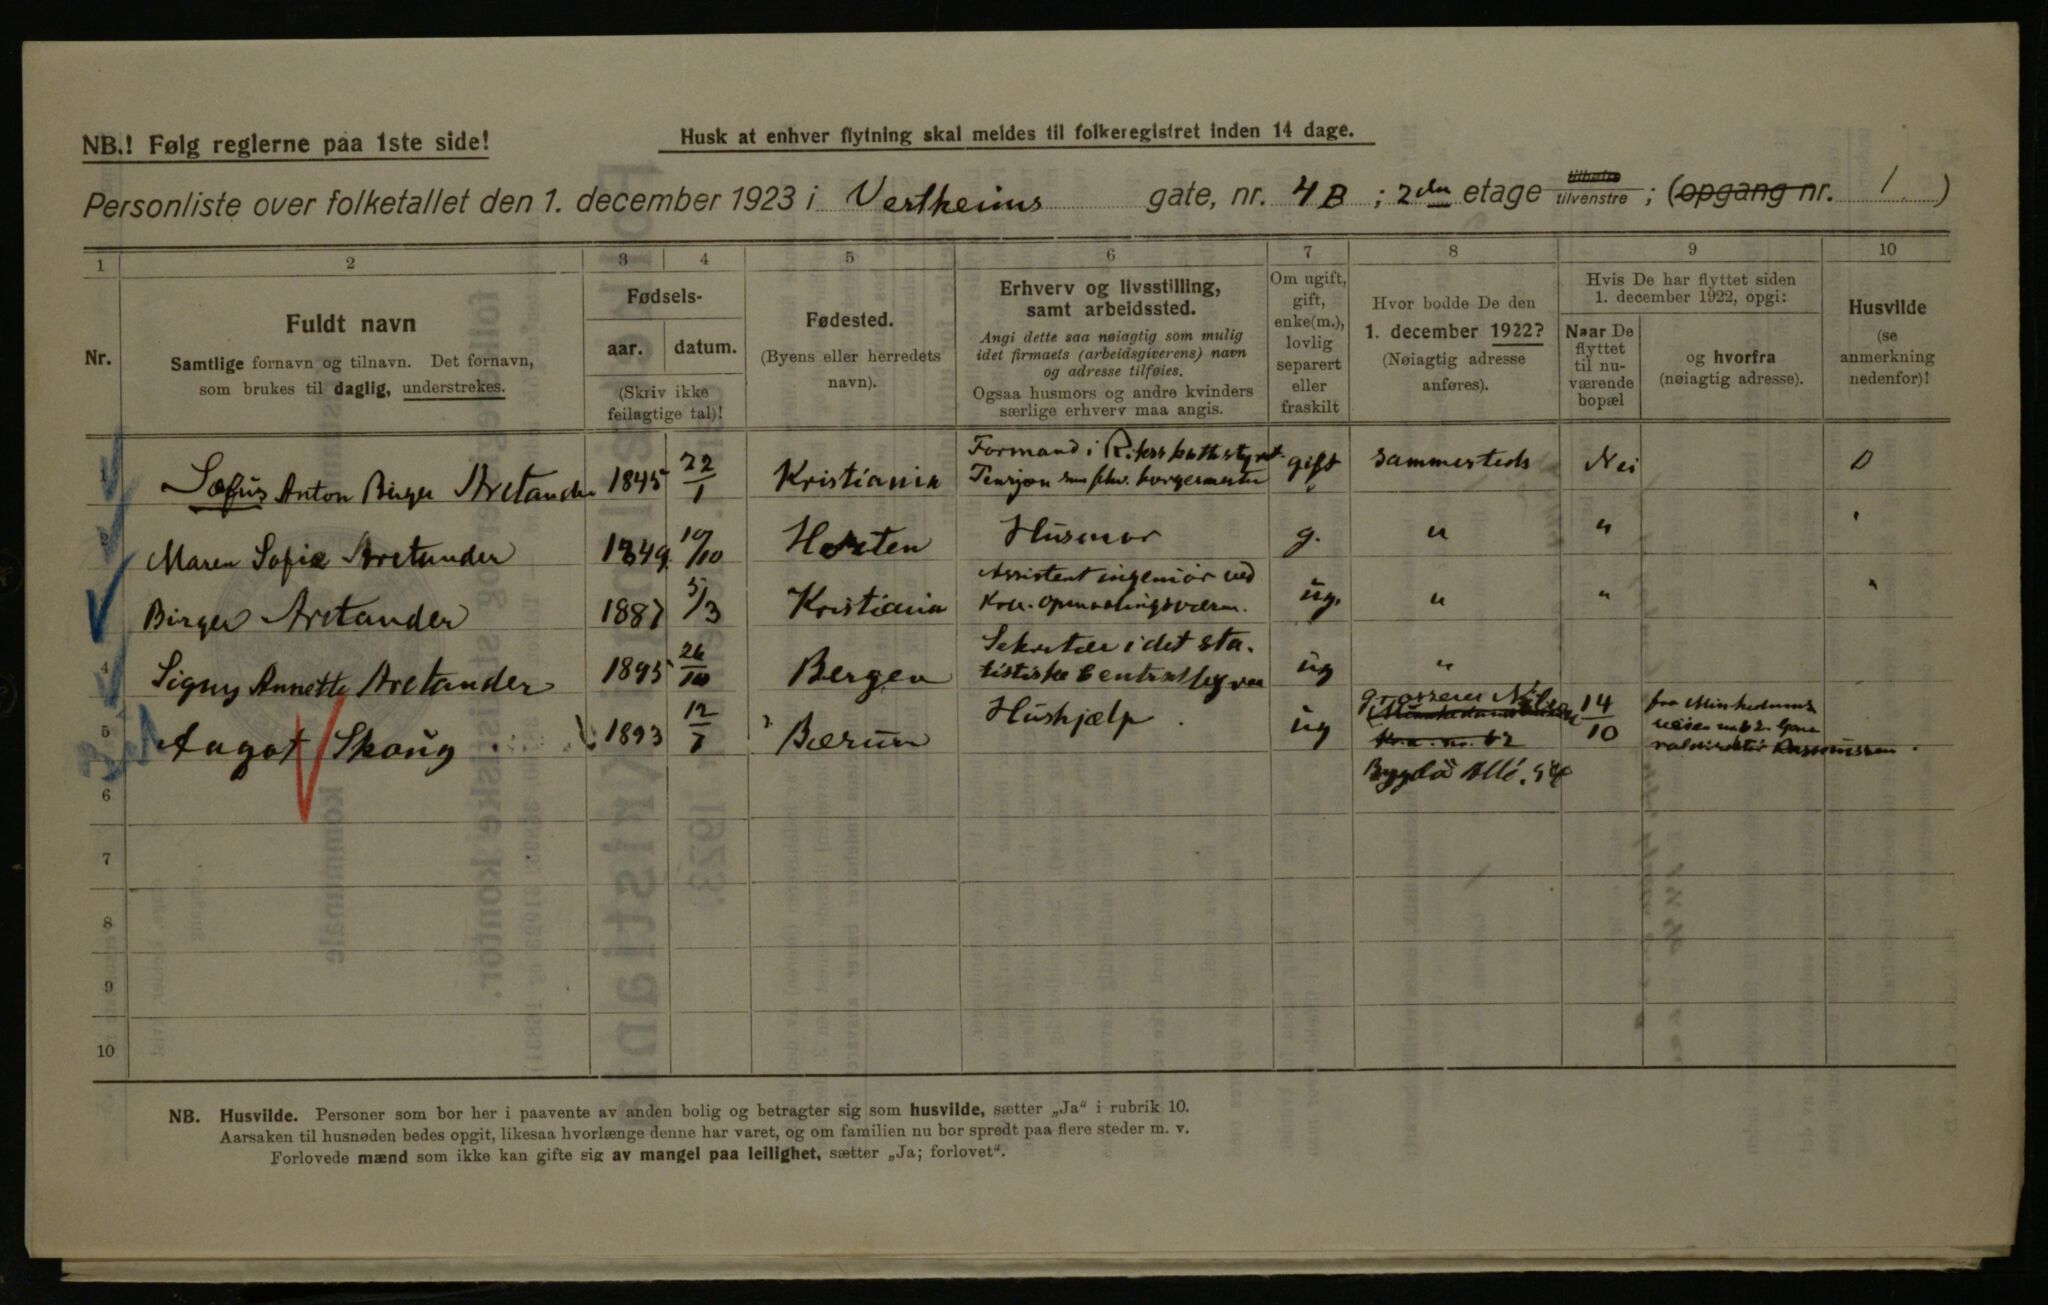 NB.! Følg reglerne paa 1ste side!
Husk at enhver flytning skal meldes til folkeregistret inden 14 dage.
Personliste over folketallet den 1. december 1923 i Vestheims gate, nr. 4B ; 2den etage tilvenstre ; (opgang nr. 1 )
1 2 3 4 5 6 7 8 9 10
Nr.
Fuldt navn
Samtlige fornavn og tilnavn. Det fornavn,
som brukes til daglig, understrekes.
Fødsels-
aar. datum.
(Skriv ikke
feilagtige tal)!
Fødested.
(Byens eller herredets
navn).
Erhverv og livsstilling,
samt arbeidssted.
Angi dette saa nøiagtig som mulig
idet firmaets (arbeidsgiverens) navn
og adresse tilføies.
Ogsaa husmors og andre kvinders
særlige erhverv maa angis.
Om ugift,
gift,
enke(m.),
lovlig
separert
eller
fraskilt
Hvor bodde De den
1. december 1922?
(Nøiagtig adresse
anføres).
Hvis De har flyttet siden
1. december 1922, opgi:
Naar De
flyttet
til nu-
værende
bopæl
og hvorfra
(nøiagtig adresse).
Husvilde
(se
anmerkning
nedenfor)!
1 Sofus Anton Birger Arctander 1845 22/1 Kristiania Formand i Riksskattestyret. gift sammesteds Nei 0
Pensjon som fhv. borgermester
2 Maren Sofie Arctander 1849 10/10 Horten Husmor g. " " "
3 Birger Arctander 1887 5/3 Kristiania Assistent ingeniør ved ug. " " "
Kra. opmaalingsvæsen.
4 Signy Annette Arctander 1895 26/10 Bergen Sekretær i det sta- ug "
tistiske Centralbyraa
5 Aagot Skoug 1893 12/1 Bærum Hushjælp ug grosserer Nilsen 14/10 fra Munkedams
veien nr. 62. Gene
raldirektør Rasmussen.
Kra. nr. 62
Bygdø Allé.
6
7
8
9
10
NB. Husvilde. Personer som bor her i paavente av anden bolig og betragter sig som husvilde, sætter „Ja“ i rubrik 10.
Aarsaken til husnøden bedes opgit, likesaa hvorlænge denne har varet, og om familien nu bor spredt paa flere steder m. v.
Forlovede mænd som ikke kan gifte sig av mangel paa leilighet, sætter „Ja; forlovet“.